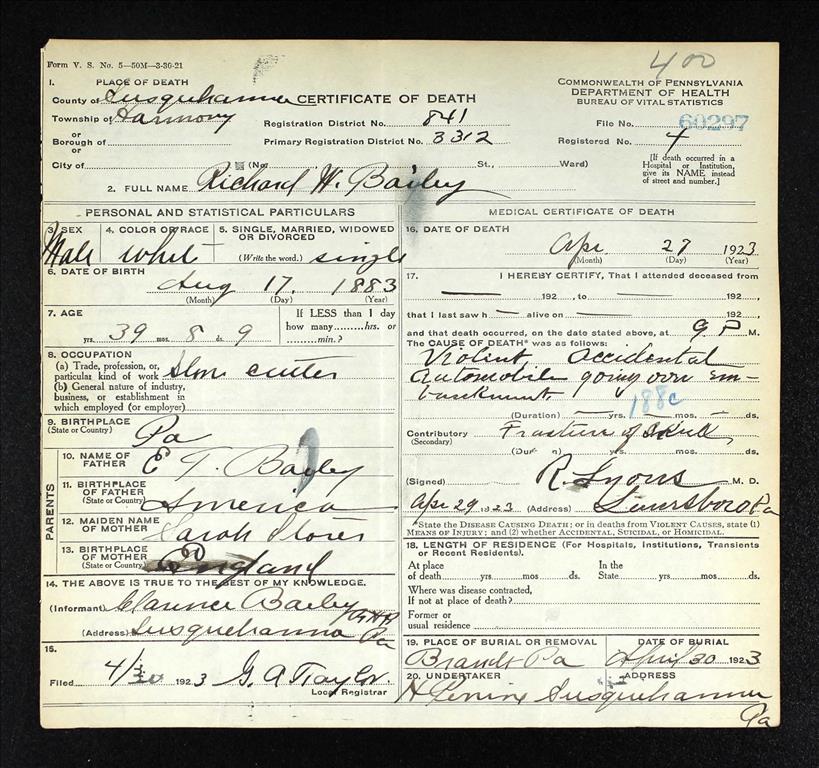 400
Form V. S. No. 5—50M—3-30-21
1. PLACE OF DEATH
County of Susquehanna
Township of Harmony
or
Borough of
or
City of
CERTIFICATE OF DEATH
Registration District No. 841
Primary Registration District No. 3312
(No. St., Ward)
COMMONWEALTH OF PENNSYLVANIA
DEPARTMENT OF HEALTH
BUREAU OF VITAL STATISTICS
File No. 60297
Registered No. 4
[If death occurred in a
Hospital or Institution,
give its NAME instead
of street and number.]
2. FULL NAME Richard W. Bailey
PERSONAL AND STATISTICAL PARTICULARS
3. SEX
Male
4. COLOR OR RACE
whit
5. SINGLE, MARRIED, WIDOWED
OR DIVORCED
(Write the word.) single
6. DATE OF BIRTH
Aug 17. 1883
(Month) (Day) (Year)
7. AGE
yrs. 39 mos. 8 ds. 9
If LESS than 1 day
how many hrs. or
min.?
8. OCCUPATION
(a) Trade, profession, or
particular kind of work Stone cutter
(b) General nature of industry,
business, or establishment in
which employed (or employer)
9. BIRTHPLACE
(State or Country) Pa
PARENTS
10. NAME OF
FATHER E T. Bailey
11. BIRTHPLACE
OF FATHER
(State or Country) America
12. MAIDEN NAME
OF MOTHER Sarah
13. BIRTHPLACE
OF MOTHER
(State or Country) England
14. THE ABOVE IS TRUE TO THE BEST OF MY KNOWLEDGE.
(Informant) Clarence Bailey
(Address) Susquehanna Pa
15.
Filed 4/30 1923 G. A Taylor
Local Registrar
MEDICAL CERTIFICATE OF DEATH
16. DATE OF DEATH
Apr. 27 1923
(Month) (Day) (Year)
17. I HEREBY CERTIFY, That I attended deceased from
— 192 , to — 192 ,
that I last saw h — alive on — 192 ,
and that death occurred, on the date stated above, at 9 P M.
The CAUSE OF DEATH* was as follows:
Violent accidental
Automobile going over em-
bankment.
188c
(Duration) — yrs. — mos. — ds.
Contributory Fracture of Skull
(Secondary)
(Duration) yrs. mos. ds.
(Signed) R. Lyons M. D.
Apr 29 1923 (Address) Lanesboro Pa
*State the DISEASE CAUSING DEATH; or in deaths from VIOLENT CAUSES, state (1)
MEANS OF INJURY; and (2) whether ACCIDENTAL, SUICIDAL, or HOMICIDAL.
18. LENGTH OF RESIDENCE (For Hospitals, Institutions, Transients
or Recent Residents).
At place
of death yrs. mos. ds.
In the
State yrs. mos. ds.
Where was disease contracted,
If not at place of death?
Former or
usual residence
19. PLACE OF BURIAL OR REMOVAL
Brandt Pa
DATE OF BURIAL
April 30 1923
20. UNDERTAKER
ADDRESS
Susquehanna
Pa